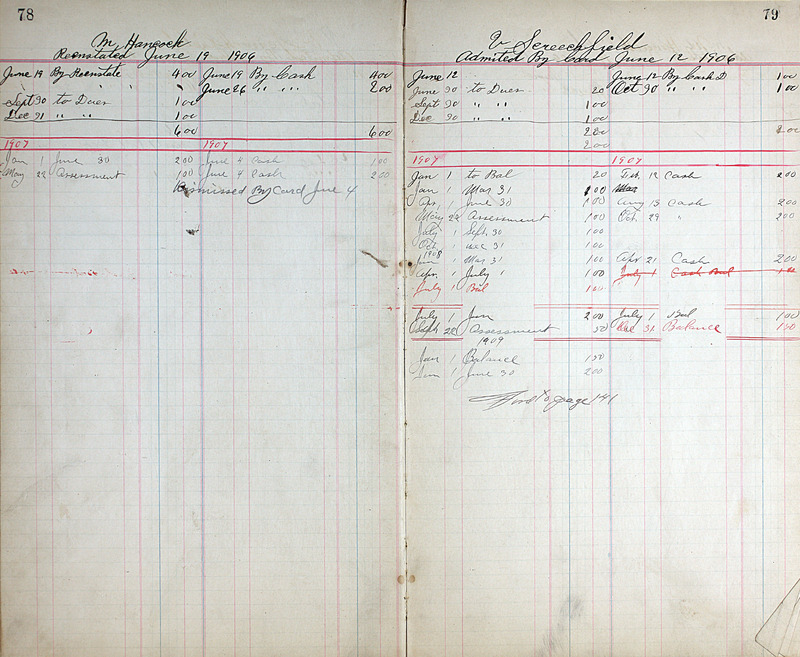 78
M Hancock
Reenstated June 19 1906
June 19 By Reenstate 4 00 June 19 By Cash 4 00
June 26 " " 2 00
Sept 30 to Dues 1 00
Dec 31 " " 1 00
6 00 6 00
1907 1907
Jan 1 June 30 2 00 June 4 Cash 1 00
May 22 Assessment 1 00 June 4 Cash 2 00
Dismissed By Card June 4
79
V Screechfield
Admited By Card June 12 1906
June 12 June 12 By Cash D 1 00
June 30 to Dues 20 Oct 30 " " 1 00
Sept 30 " " 1 00
Dec 30 " " 1 00
2 20 2 00
2 00
1907 1907
Jan 1 to Bal 20 Feb 12 Cash 2 00
Jan 1 Mar 31 1 00 Mar
Apr 1 June 30 1 00 Aug 13 Cash 2 00
May 22 Assessment 1 00 Oct 29 " 2 00
July 1 Sept 30 1 00
Oct 1 Dec 31 1 00
1908
Jan 1 Mar 31 1 00 Apr 21 Cash 2 00
Apr 1 July 1 1 00 July 1 Cash Bal 1 00
July 1 Bal 1 00
July 1 Jan 2 00 July 1 Bal 1 00
Sept 22 Assessment 50 Dec 31 Balance 1 50
1909
Jan 1 Balance 1 50
Jan 1 June 30 2 00
Ford to page 141